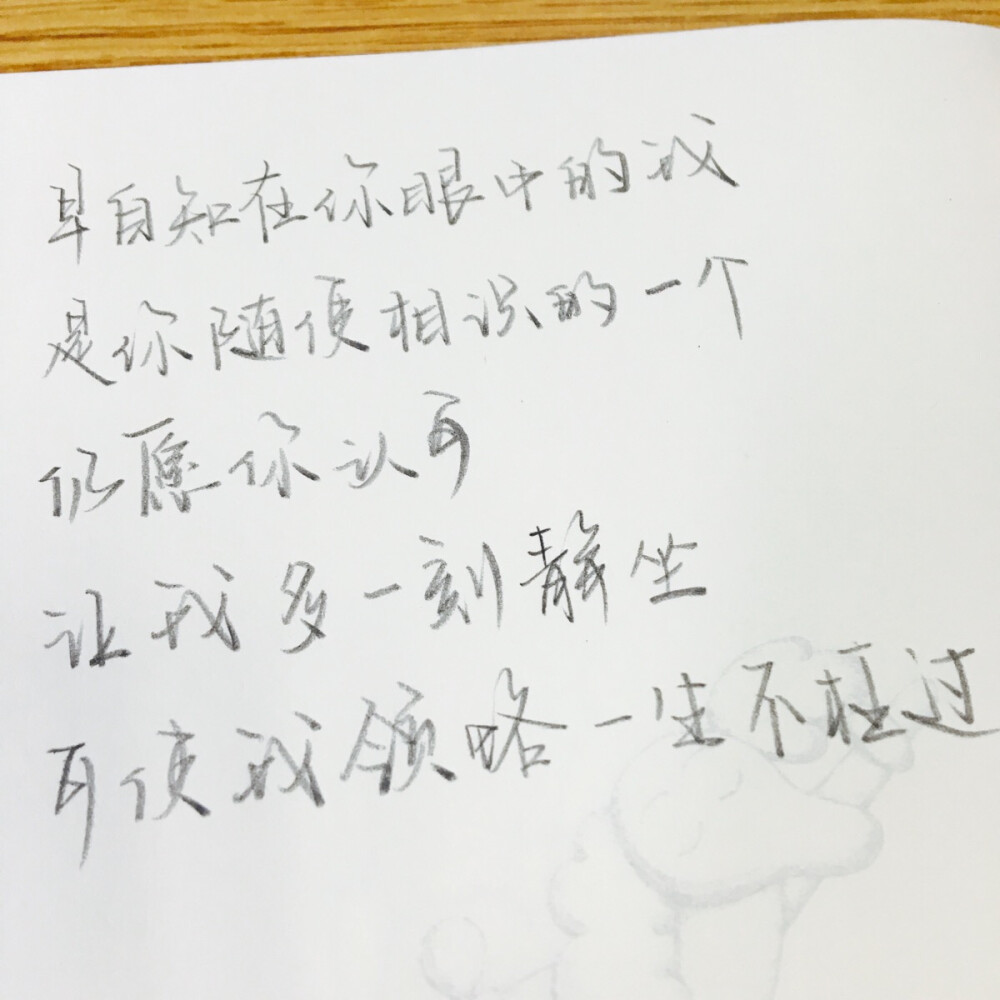 早自知在你眼中的我
是你随便相识的一个
仍愿你认可
让我多一刻静坐
可使我领略一生不枉过